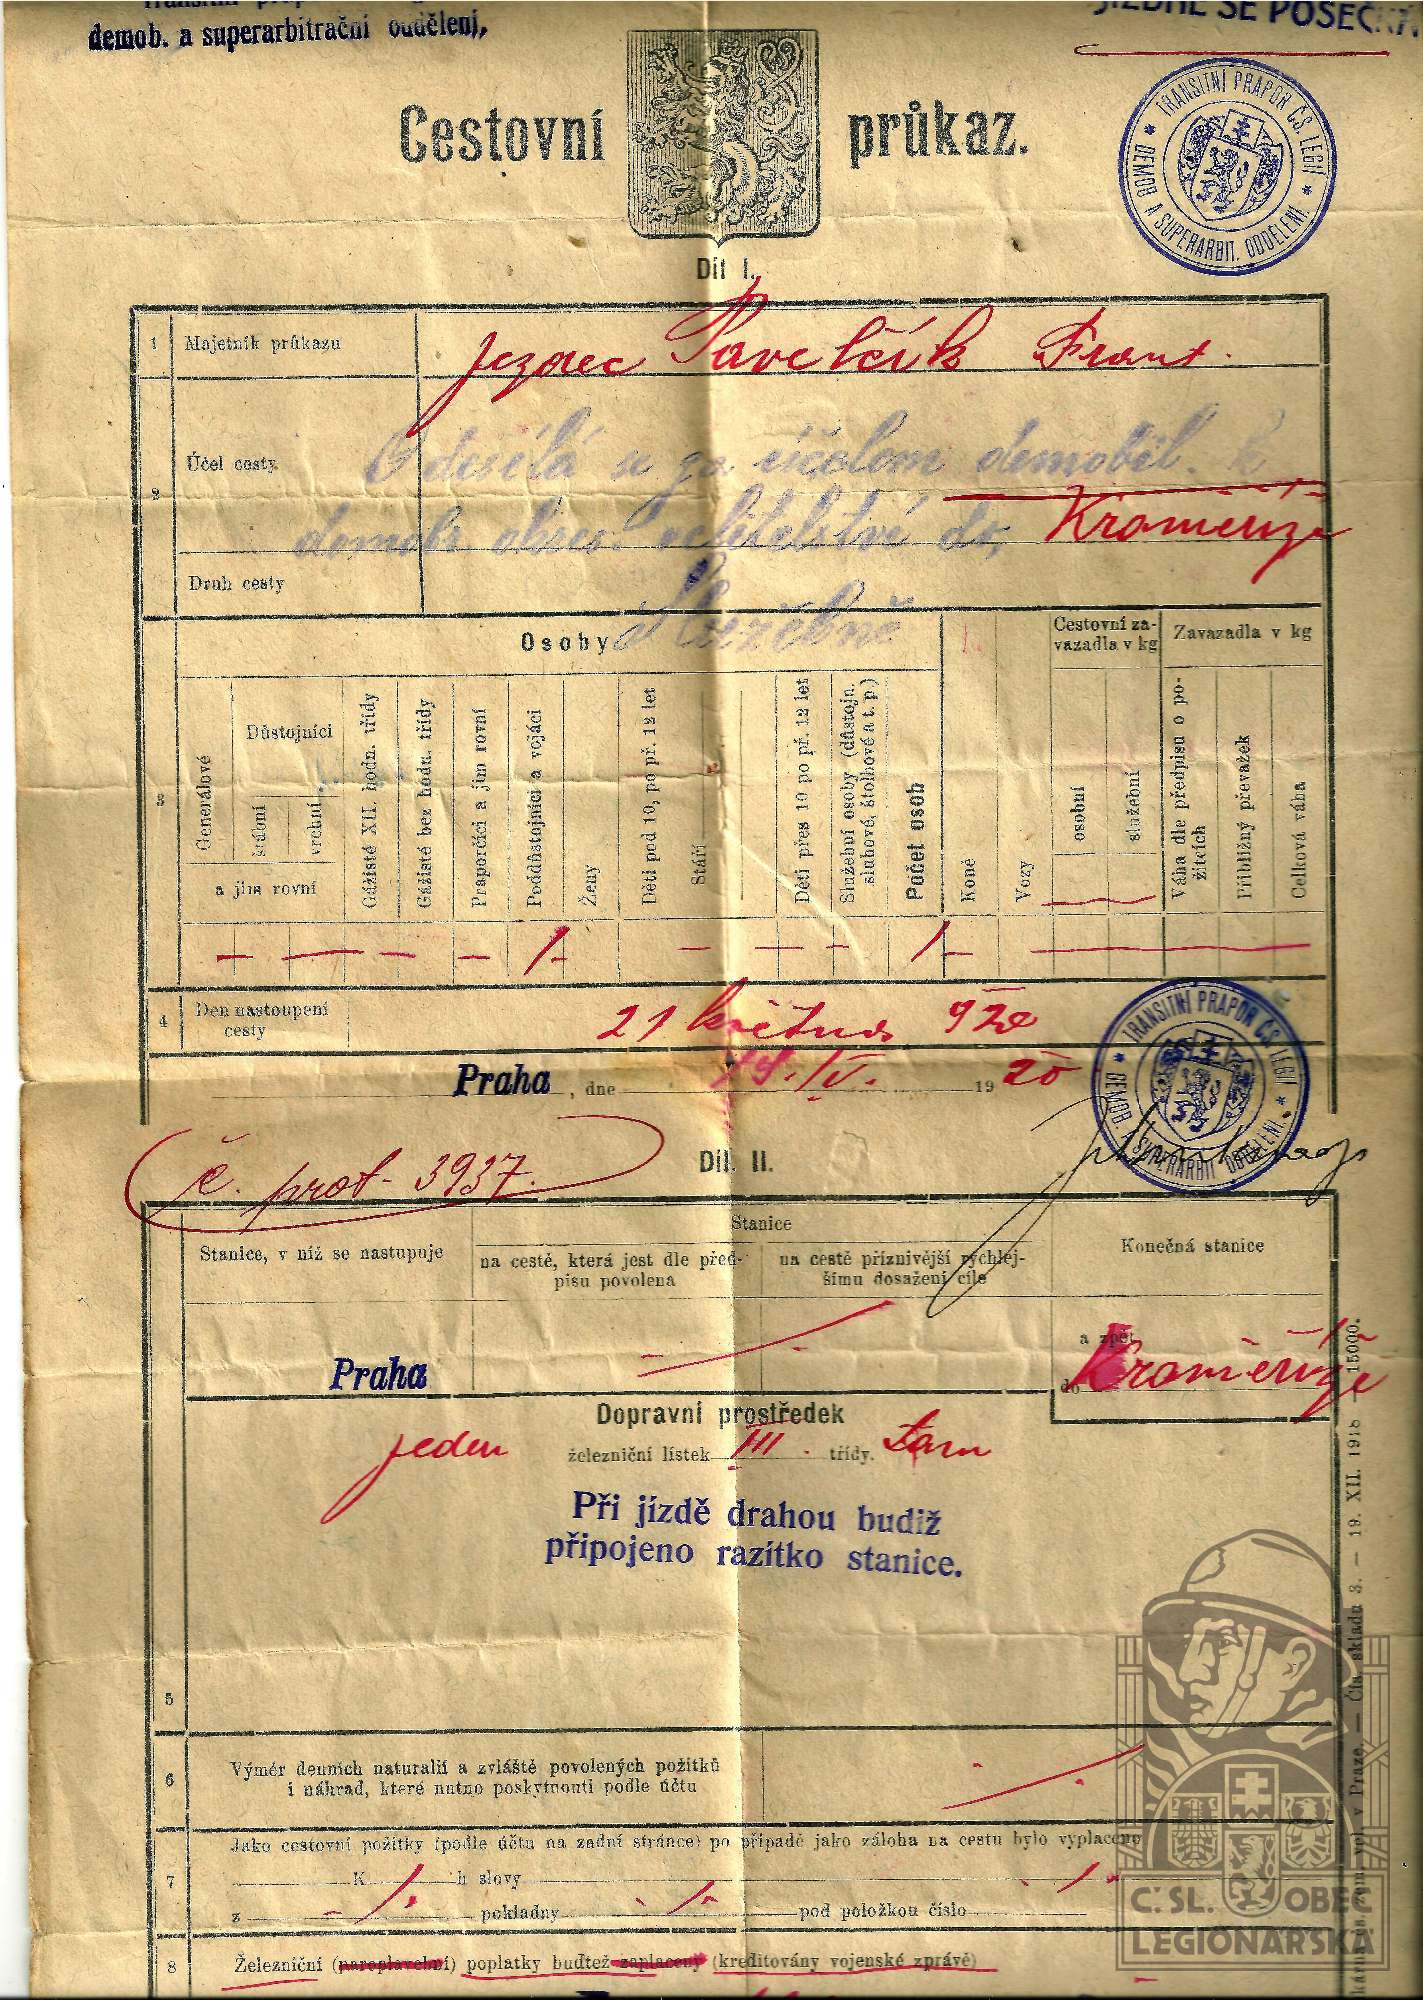 demob. a superarbitrační oddělení,
JÍZDNÉ SE POSEČKÁ
Cestovní průkaz.
TRANSITNÍ PRAPOR ČS. LEGIÍ * DEMOB. A SUPERARBIT. ODDĚLENÍ. *
Díl I.
1 Majetník průkazu Jezdec Pavelčík Frant.
2 Účel cesty Odesílá se za účelem demobil. k
demob. okres. velitelství do Kroměříže
Druh cesty Služebně
3 Osoby
Cestovní zavazadla v kg
Zavazadla v kg
Generálové
Důstojníci
štábní
vrchní
a jim rovní
Gážisté XII. hodn. třídy
Gážisté bez hodn. třídy
Praporčíci a jim rovní
Poddůstojníci a vojáci
Ženy
Děti pod 10, po př. 12 let
Stáří
Děti přes 10 po př. 12 let
Služební osoby (důstojn. sluhové, štolbové a t. p.)
Počet osob
Koně
Vozy
osobní
služební
Váha dle předpisu o požitcích
Přibližný převažek
Celková váha
— — — — 1- — — — 1- —
4 Den nastoupení cesty 21 května 920
Praha, dne 19. IV. 1920
TRANSITNÍ PRAPOR ČS. LEGIÍ * DEMOB. A SUPERARBIT. ODDĚLENÍ. *
č. prot. 3937.
Díl. II.
Stanice, v níž se nastupuje
Stanice
na cestě, která jest dle předpisu povolena
na cestě příznivější rychlejšímu dosažení cíle
Konečná stanice
Praha
a zpět
do Kroměříže
Dopravní prostředek
jeden železniční lístek III. třídy. tam
Při jízdě drahou budiž
připojeno razítko stanice.
5
6 Výměr denních naturalií a zvláště povolených požitků
i náhrad, které nutno poskytnouti podle účtu
7 Jako cestovní požitky (podle účtu na zadní stránce) po případě jako záloha na cestu bylo vyplaceno
K h slovy
z pokladny pod položkou číslo
8 Železniční (paroplavební) poplatky buďtež zaplaceny (kreditovány vojenské zprávě)
Praze. — Čís. skladu 3. — 19. XII. 1918 — 15000.
ČSL. OBEC
LEGIONÁŘSKÁ